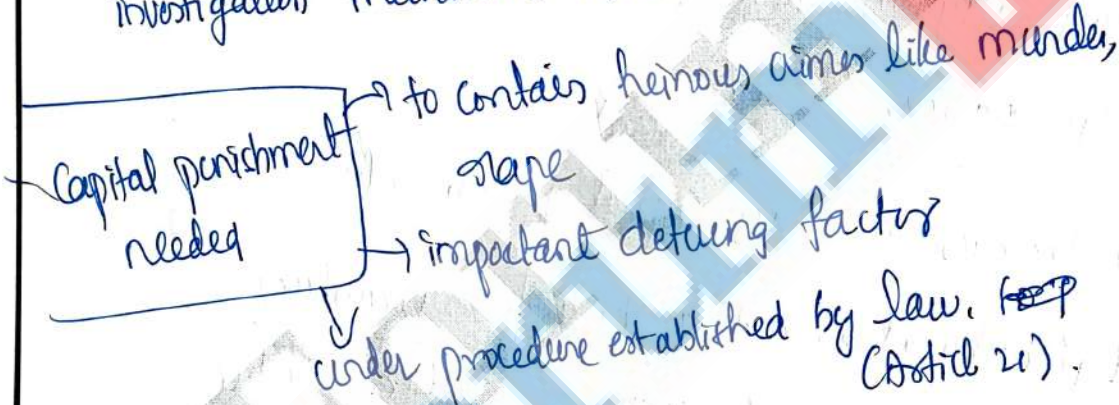 investigation
Capital punishment
needed
→ to contain heinous crimes like murder,
rape
→ important deterring factor
under procedure established by law.
(Article 21).